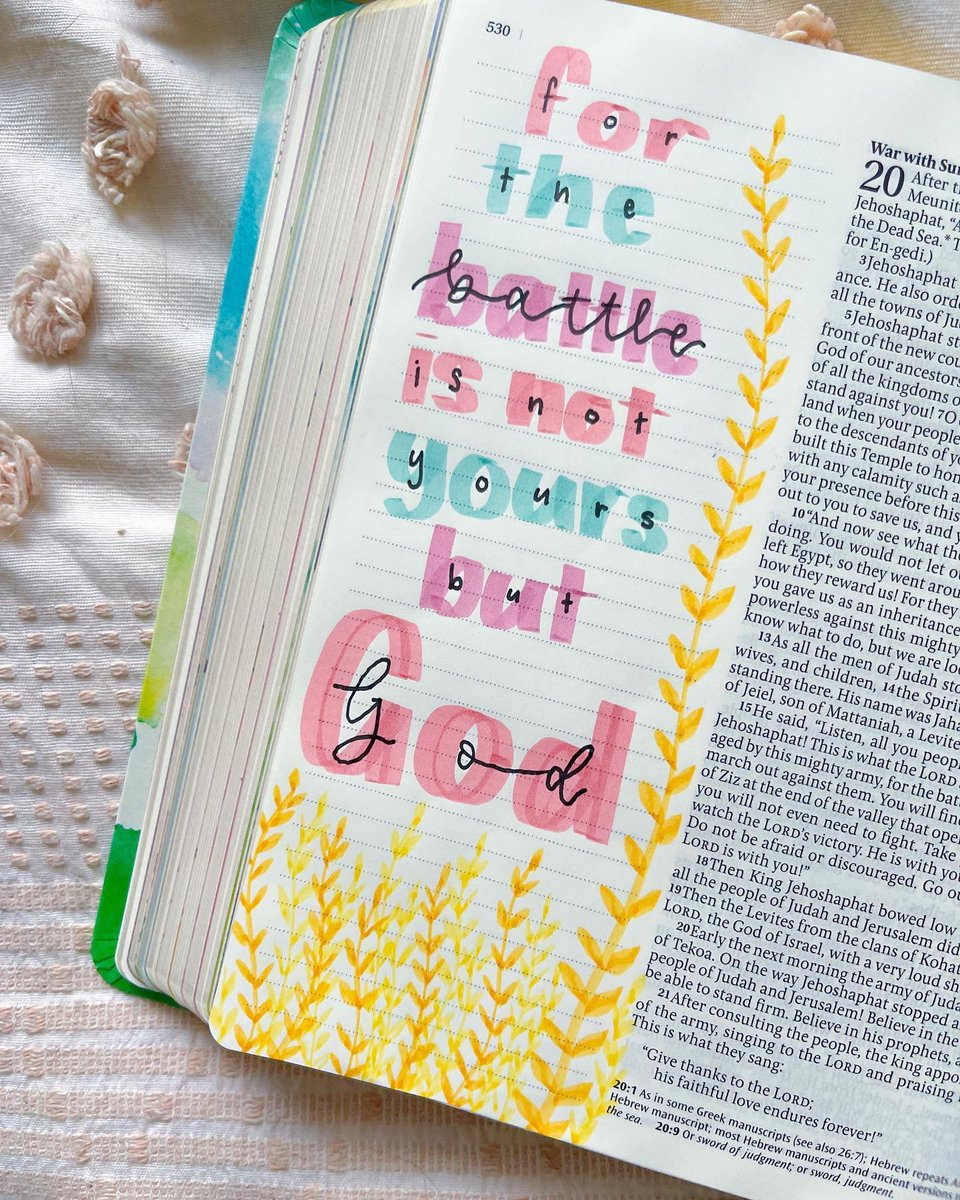 530
for
the
battle
is not
yours
but
God
War with
20 After
Meunit
Jehoshaphat,
the Dead Sea.*
for En-gedi.)
3Jehoshaphat
ance. He also
all the towns of
5Jehoshaphat
front of the new
God of our ancestors
of all the kingdoms
stand against you! 7O
land when your people
to the descendants of
built this Temple to
with any calamity such
your presence before this
out to you to save us, and
10“And now see what the
doing. You would not let
left Egypt, so they went
how they reward us! For they
you gave us as an inheritance
powerless against this mighty
know what to do, but we are
13As all the men of Judah
wives, and children, 14the Spirit
standing there. His name was
of Jeiel, son of Mattaniah, a Levite
15He said, “Listen, all you
Jehoshaphat! This is what the LORD
aged by this mighty army, for the
march out against them. You will
of Ziz at the end of the valley that
you will not even need to fight. Take
watch the LORD’s victory. He is with
Do not be afraid or discouraged. Go
LORD is with you!”
18Then King Jehoshaphat bowed low
all the people of Judah and Jerusalem did
19Then the Levites from the clans of
LORD, the God of Israel, with a very loud
20Early the next morning the army of
of Tekoa. On the way Jehoshaphat stopped
people of Judah and Jerusalem! Believe in the
be able to stand firm. Believe in his prophets,
21After consulting the people, the king
of the army, singing to the LORD and praising
This is what they sang:
“Give thanks to the LORD;
his faithful love endures forever!”
20:1 As in some Greek manuscripts (see also 26:7); Hebrew repeats
Hebrew manuscript; most Hebrew manuscripts and ancient versions
the sea. 20:9 Or sword of judgment; or sword, judgment,